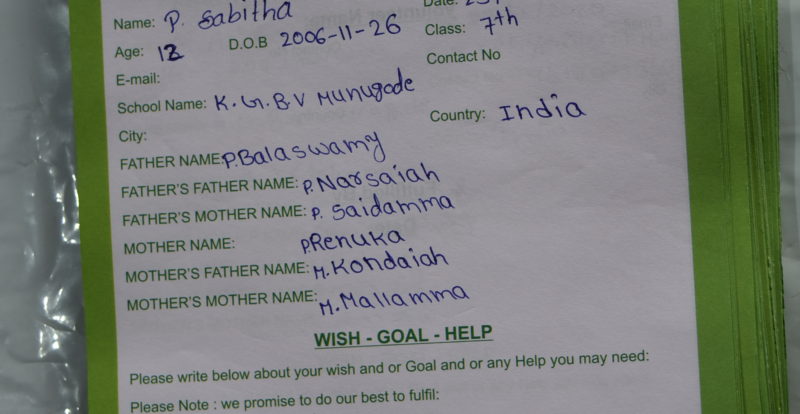 Name: P. Sabitha
Date:
Age: 12 D.O.B 2006-11-26 Class: 7th
E-mail: Contact No
School Name: K.G.B.V Munugode
City: Country: India
FATHER NAME: P.Balaswamy
FATHER'S FATHER NAME: P.Narsaiah
FATHER'S MOTHER NAME: P. Saidamma
MOTHER NAME: P.Renuka
MOTHER'S FATHER NAME: M.Kondaiah
MOTHER'S MOTHER NAME: M.Mallamma
WISH - GOAL - HELP
Please write below about your wish and or Goal and or any Help you may need:
Please Note : we promise to do our best to fulfil: